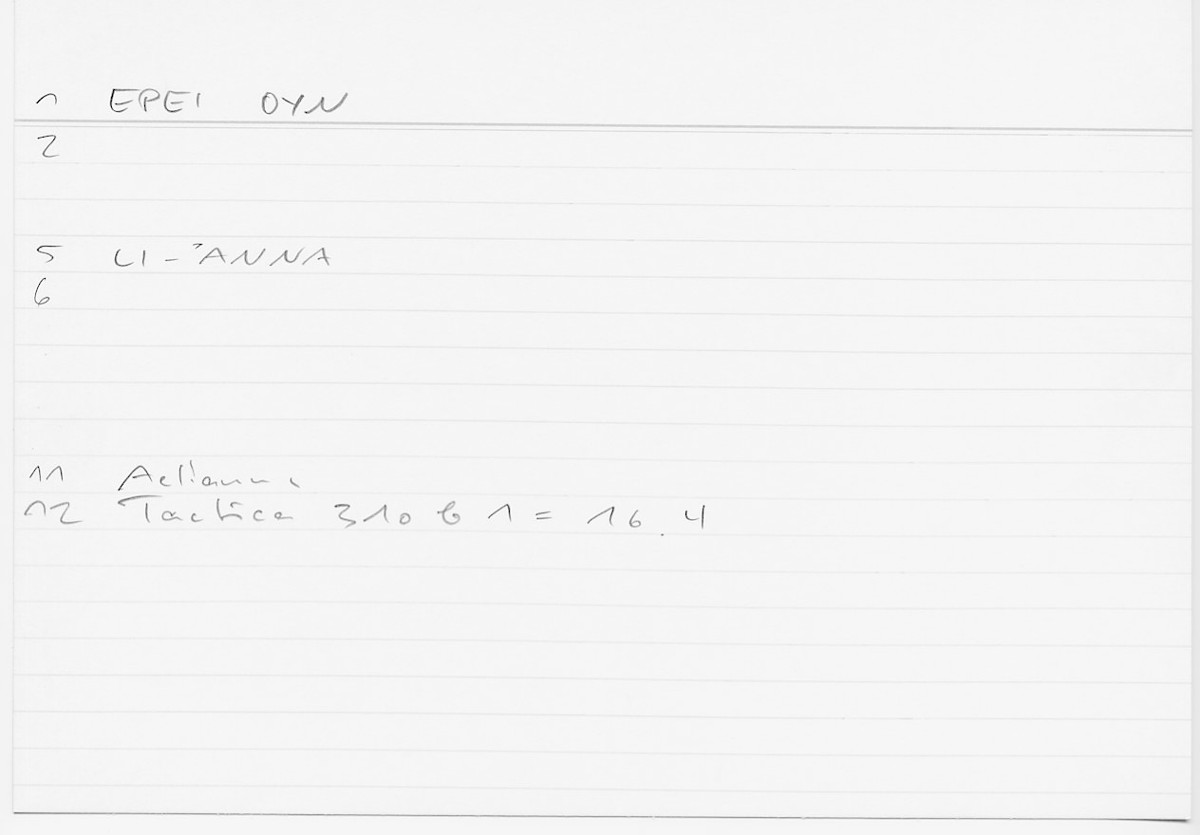 1 EPEI OYN
2
5 LI-'ANNA
6
11 Aelianus
12 Tactica 310 b 1 = 16.4